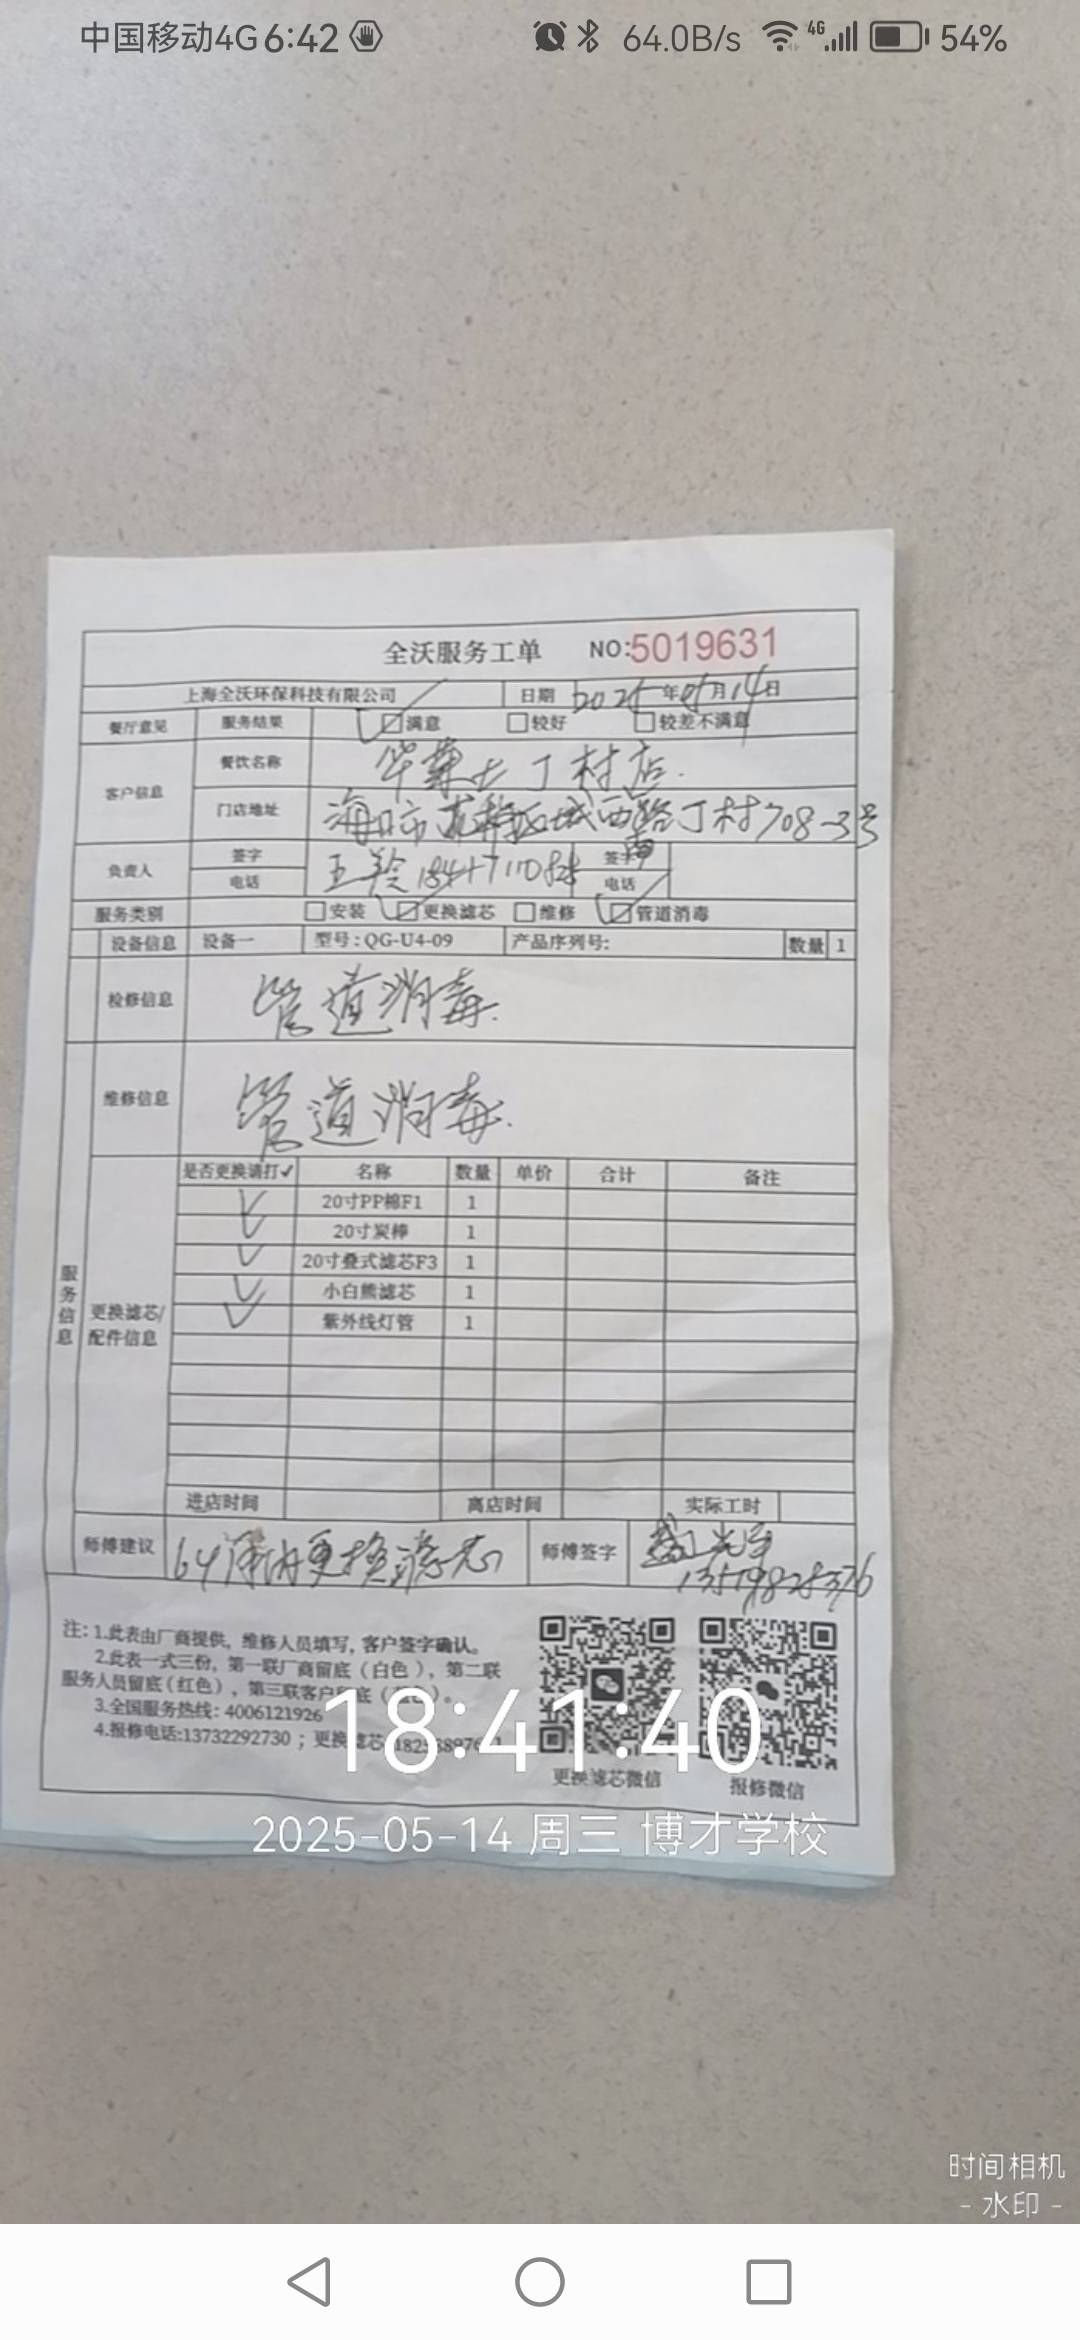 中国移动4G 6:42 64.0B/s 4G 54%
全沃服务工单 NO:5019631
上海全沃环保科技有限公司 日期 2025年05月14日
餐厅意见 服务结果 满意 较好 较差不满意
客户信息 餐饮名称 华莱士丁村店.
门店地址 海口市龙华区城西路丁村708-3号
负责人 签字 王 签字
电话 电话
服务类别 安装 更换滤芯 维修 管道消毒
设备信息 设备一 型号:QG-U4-09 产品序列号: 数量 1
检修信息 管道消毒.
维修信息 管道消毒.
服务信息
更换滤芯/配件信息
是否更换请打✓ 名称 数量 单价 合计 备注
✓ 20寸PP棉F1 1
✓ 20寸炭棒 1
✓ 20寸叠式滤芯F3 1
✓ 小白熊滤芯 1
✓ 紫外线灯管 1
进店时间 离店时间 实际工时
师傅建议 更换滤芯 师傅签字
注: 1.此表由厂商提供, 维修人员填写, 客户签字确认。
2.此表一式三份, 第一联厂商留底(白色), 第二联
服务人员留底(红色), 第三联客户留底
3.全国服务热线: 4006121926
4.报修电话:13732292730; 更换滤芯
更换滤芯微信 报修微信
18:41:40
2025-05-14 周三 博才学校
时间相机
- 水印 -